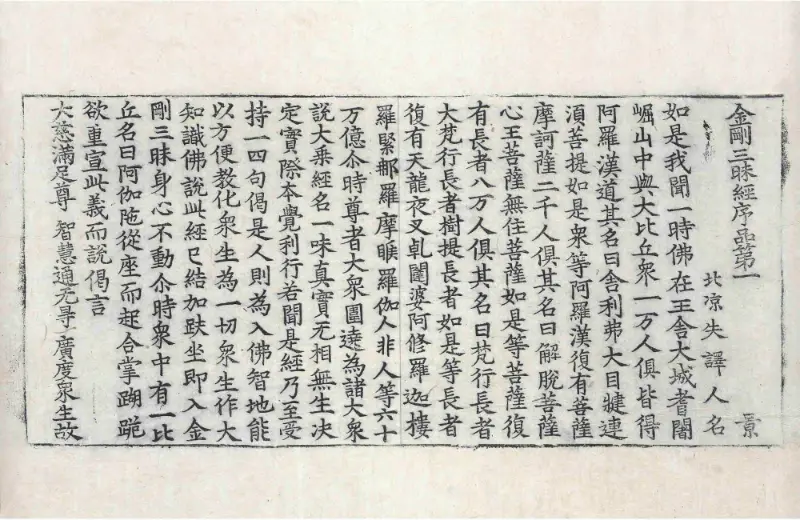 金剛三昧經序品第一 景
北涼失譯人名
如是我聞一時佛在王舍大城耆闍
崛山中與大比丘衆一万人俱皆得
阿羅漢道其名曰舎利弗大目犍連
湏菩提如是衆等阿羅漢復有菩薩
摩訶薩二千人俱其名曰解脫菩薩
心王菩薩無住菩薩如是等菩薩復
有長者八万人俱其名曰梵行長者
大梵行長者樹提長者如是等長者
復有天龍夜叉乹闥婆阿修羅迦樓
羅緊那羅摩睺羅伽人非人等六十
万億尒時尊者大衆圍遶為諸大衆
說大乗經名一味真實无相無生决
定實際本覺利行若聞是經乃至受
持一四句偈是人則為入佛智地能
以方便教化衆生為一切衆生作大
知識佛說此經已結加趺坐即入金
剛三昧身心不動尒時衆中有一比
丘名曰阿伽陁從座而起合掌𨆝跪
欲重宣此義而說偈言
大慈滿足尊 智慧通无㝵 廣度衆生故